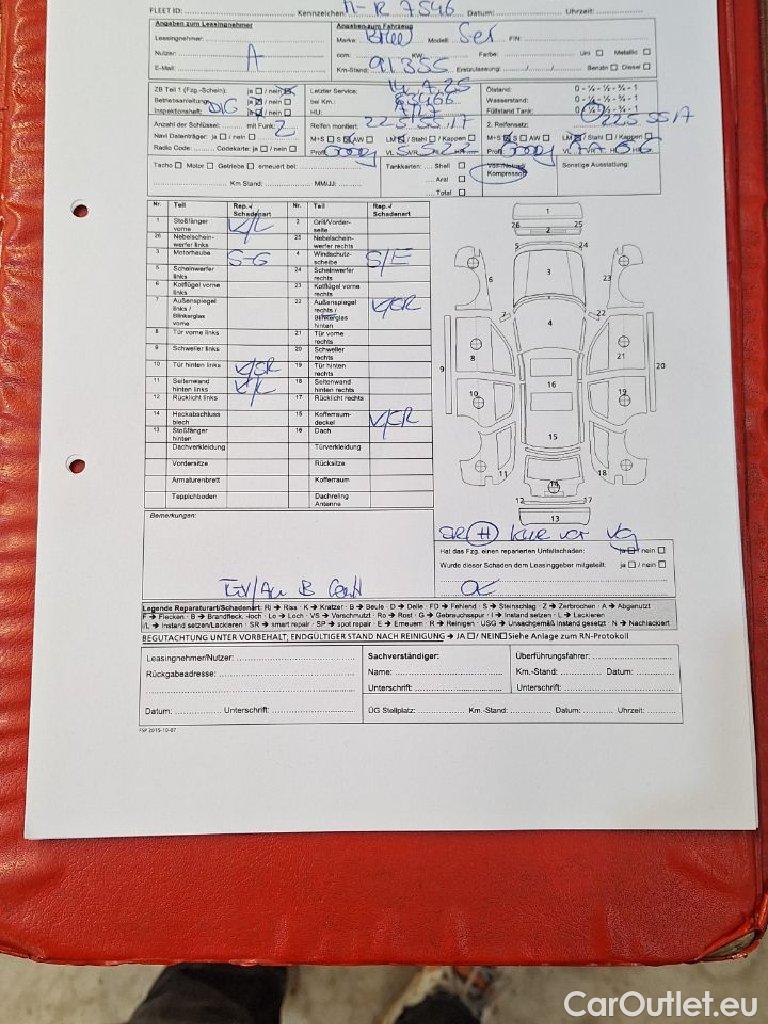 FLEET ID: Kennzeichen: 7546 Datum: Uhrzeit:
Angaben zum Leasingnehmer Angaben zum Fahrzeug
Leasingnehmer: Marke: BMW Modell: 5er FIN:
Nutzer: A com: KW: Farbe: Uni □ Metallic □
E-Mail: Km-Stand: 91355 Erstzulassung: Benzin □ Diesel □
ZB Teil 1 (Fzg.-Schein): ja □ / nein Letzter Service: Ölstand: 0 - ¼ - ½ - ¾ - 1
Betriebsanleitung: bei Km.: Wasserstand: 0 - ¼ - ½ - ¾ - 1
Inspektionsheft: DIG HU: Füllstand Tank:
Anzahl der Schlüssel: mit Funk: 2 Reifen montiert: 225 2. Reifensatz: 225 55 17
Navi Datenträger: ja □ / nein □ M+S S AW □ LM / Stahl □ / Kappen □ M+S S AW □ LM / Stahl □ / Kappen □
Radio Code: Codekarte: ja □ / nein □ Profil VL Profil VL
Tacho □ Motor □ Getriebe □ erneuert bei: Tankkarten: Shell □ Kompressor Sonstige Ausstattung:
Km Stand: MM/JJ: Aral □
Total □
Nr. Teil Rep.-/ Schadenart Nr. Teil Rep.-/ Schadenart
1 Stoßfänger vorne K/L 2 Grill/Vorderseite
26 Nebelscheinwerfer links 25 Nebelscheinwerfer rechts
3 Motorhaube S-G 4 Windschutzscheibe S/E
5 Scheinwerfer links 24 Scheinwerfer rechts
6 Kotflügel vorne links 23 Kotflügel vorne rechts
7 Außenspiegel links / Blinkerglas vorne 22 Außenspiegel rechts / Blinkerglas hinten K/SR
8 Tür vorne links 21 Tür vorne rechts
9 Schweller links 20 Schweller rechts
10 Tür hinten links K/SR 19 Tür hinten rechts
11 Seitenwand hinten links K/L 18 Seitenwand hinten rechts
12 Rücklicht links 17 Rücklicht rechts
14 Heckabschlussblech 15 Kofferraumdeckel K/SR
13 Stoßfänger hinten 16 Dach
Dachverkleidung Türverkleidung
Vordersitze Rücksitze
Armaturenbrett Kofferraum
Teppichboden Dachreling Antenne
1
26 25
2
5 24
6 3 23
7 22
4
8 21
9 16 20
10 19
15
11 18
14
12 17
13
Bemerkungen:
SR H
Hat das Fzg. einen reparierten Unfallschaden: ja □ / nein □
Wurde dieser Schaden dem Leasinggeber mitgeteilt: ja □ / nein □
Legende Reparaturart/Schadenart: RI → Riss · K → Kratzer · B → Beule · D → Delle · FD → Fehlend · S → Steinschlag · Z → Zerbrochen · A → Abgenutzt
F → Flecken · B → Brandfleck, -loch · Lo → Loch · VS → Verschmutzt · Ro → Rost · G → Gebrauchsspur · I → Instand setzen · L → Lackieren
I/L → Instand setzen/Lackieren · SR → smart repair · SP → spot repair · E → Erneuern · R → Reinigen · USG → Unsachgemäß instand gesetzt · N → Nachlackiert
BEGUTACHTUNG UNTER VORBEHALT; ENDGÜLTIGER STAND NACH REINIGUNG → JA □ / NEIN □ Siehe Anlage zum RN-Protokoll
Leasingnehmer/Nutzer: Sachverständiger: Überführungsfahrer:
Rückgabeadresse: Name: Km.-Stand: Datum:
Unterschrift: Unterschrift:
Datum: Unterschrift: ÜG Stellplatz: Km.-Stand: Datum: Uhrzeit:
FSP 2015-10-07
CarOutlet.eu